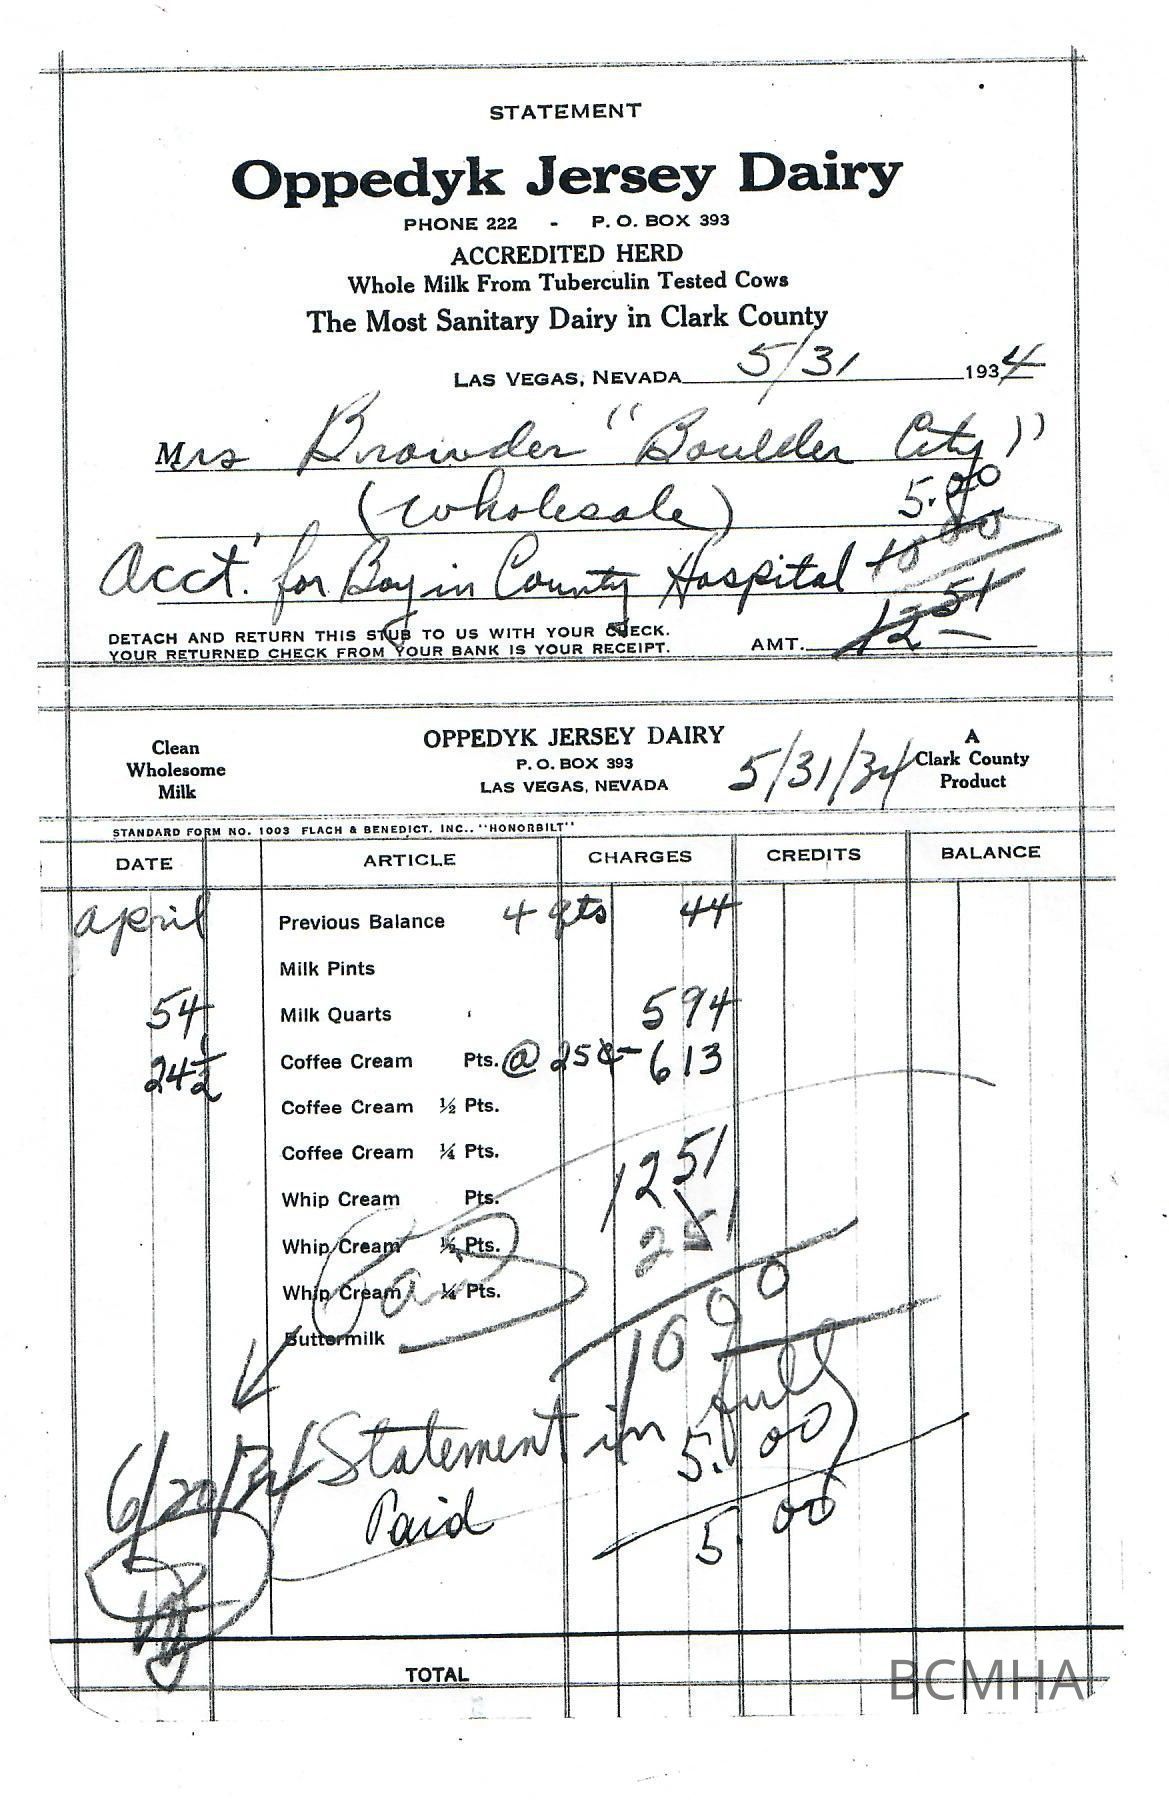 STATEMENT
Oppedyk Jersey Dairy
PHONE 222 - P. O. BOX 393
ACCREDITED HERD
Whole Milk From Tuberculin Tested Cows
The Most Sanitary Dairy in Clark County
LAS VEGAS, NEVADA 5/31 1934
Mrs Browder "Boulder City"
(wholesale) 5.00
Acct. for Boy in County Hospital 10 00
DETACH AND RETURN THIS STUB TO US WITH YOUR CHECK.
YOUR RETURNED CHECK FROM YOUR BANK IS YOUR RECEIPT. AMT. 12 51
Clean Wholesome Milk
OPPEDYK JERSEY DAIRY
P. O. BOX 393
LAS VEGAS, NEVADA
5/31/34
A Clark County Product
STANDARD FORM NO. 1003 FLACH & BENEDICT, INC., "HONORBILT"
DATE ARTICLE CHARGES CREDITS BALANCE
April Previous Balance 4 qts 44
Milk Pints
54 Milk Quarts 5 94
24 1/2 Coffee Cream Pts. @ 25¢ - 6 13
Coffee Cream ½ Pts.
Coffee Cream ¼ Pts. 12 51
Whip Cream Pts.
Whip Cream ½ Pts. 2 51
Whip Cream ¼ Pts.
Buttermilk 10 00
Statement in full
6/20/34 5.00
Paid 5.00
TOTAL
BCMHA